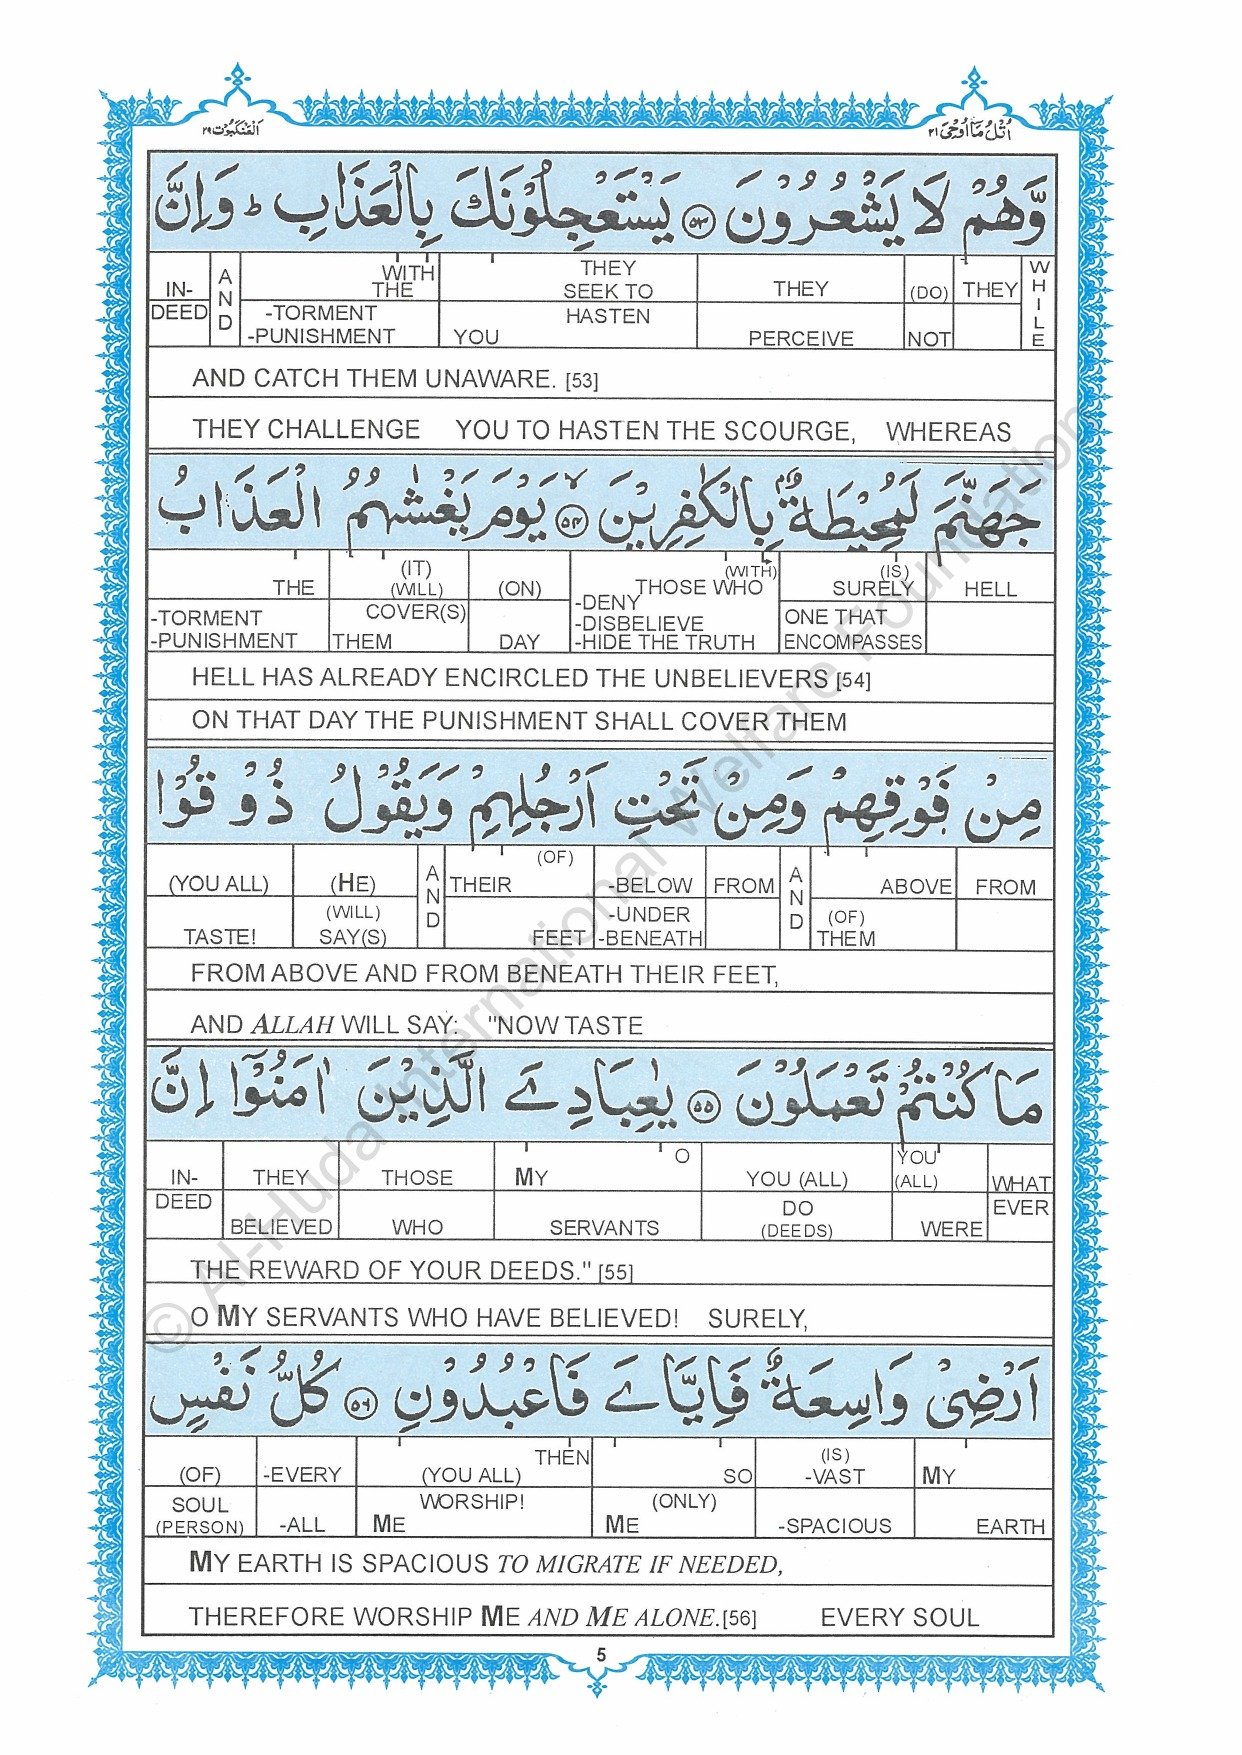 العنكبوت ٢٩
اتل ما اوحی ٢١
وَّهُمْ لَا يَشْعُرُوْنَ ٥٣ يَسْتَعْجِلُوْنَكَ بِالْعَذَابِ ط وَاِنَّ
WHILE THEY (DO) THEY THEY SEEK TO WITH THE AND IN-
NOT PERCEIVE HASTEN YOU -TORMENT -PUNISHMENT DEED
AND CATCH THEM UNAWARE. [53]
THEY CHALLENGE YOU TO HASTEN THE SCOURGE, WHEREAS
جَهَنَّمَ لَمُحِيْطَةٌۢ بِالْكٰفِرِيْنَ ٥٤ يَوْمَ يَغْشٰىهُمُ الْعَذَابُ
HELL (IS) SURELY (WITH) THOSE WHO (ON) (IT) (WILL) THE
ONE THAT ENCOMPASSES -DENY -DISBELIEVE -HIDE THE TRUTH DAY COVER(S) THEM -TORMENT -PUNISHMENT
HELL HAS ALREADY ENCIRCLED THE UNBELIEVERS [54]
ON THAT DAY THE PUNISHMENT SHALL COVER THEM
مِنْ فَوْقِهِمْ وَمِنْ تَحْتِ اَرْجُلِهِمْ وَيَقُوْلُ ذُوْقُوْا
FROM ABOVE AND FROM -BELOW (OF) THEIR AND (HE) (YOU ALL)
(OF) THEM -UNDER -BENEATH FEET (WILL) SAY(S) TASTE!
FROM ABOVE AND FROM BENEATH THEIR FEET,
AND ALLAH WILL SAY: "NOW TASTE
مَا كُنْتُمْ تَعْمَلُوْنَ ٥٥ يٰعِبَادِیَ الَّذِيْنَ اٰمَنُوْٓا اِنَّ
WHAT YOU (ALL) YOU (ALL) O MY THOSE THEY IN-
EVER WERE DO (DEEDS) SERVANTS WHO BELIEVED DEED
THE REWARD OF YOUR DEEDS." [55]
O MY SERVANTS WHO HAVE BELIEVED! SURELY,
اَرْضِیْ وَاسِعَةٌ فَاِيَّایَ فَاعْبُدُوْنِ ٥٦ كُلُّ نَفْسٍ
MY (IS) -VAST SO THEN (YOU ALL) -EVERY (OF)
EARTH -SPACIOUS (ONLY) ME WORSHIP! ME -ALL SOUL (PERSON)
MY EARTH IS SPACIOUS TO MIGRATE IF NEEDED,
THEREFORE WORSHIP ME AND ME ALONE.[56] EVERY SOUL
5
© Al-Huda International Welfare Foundation